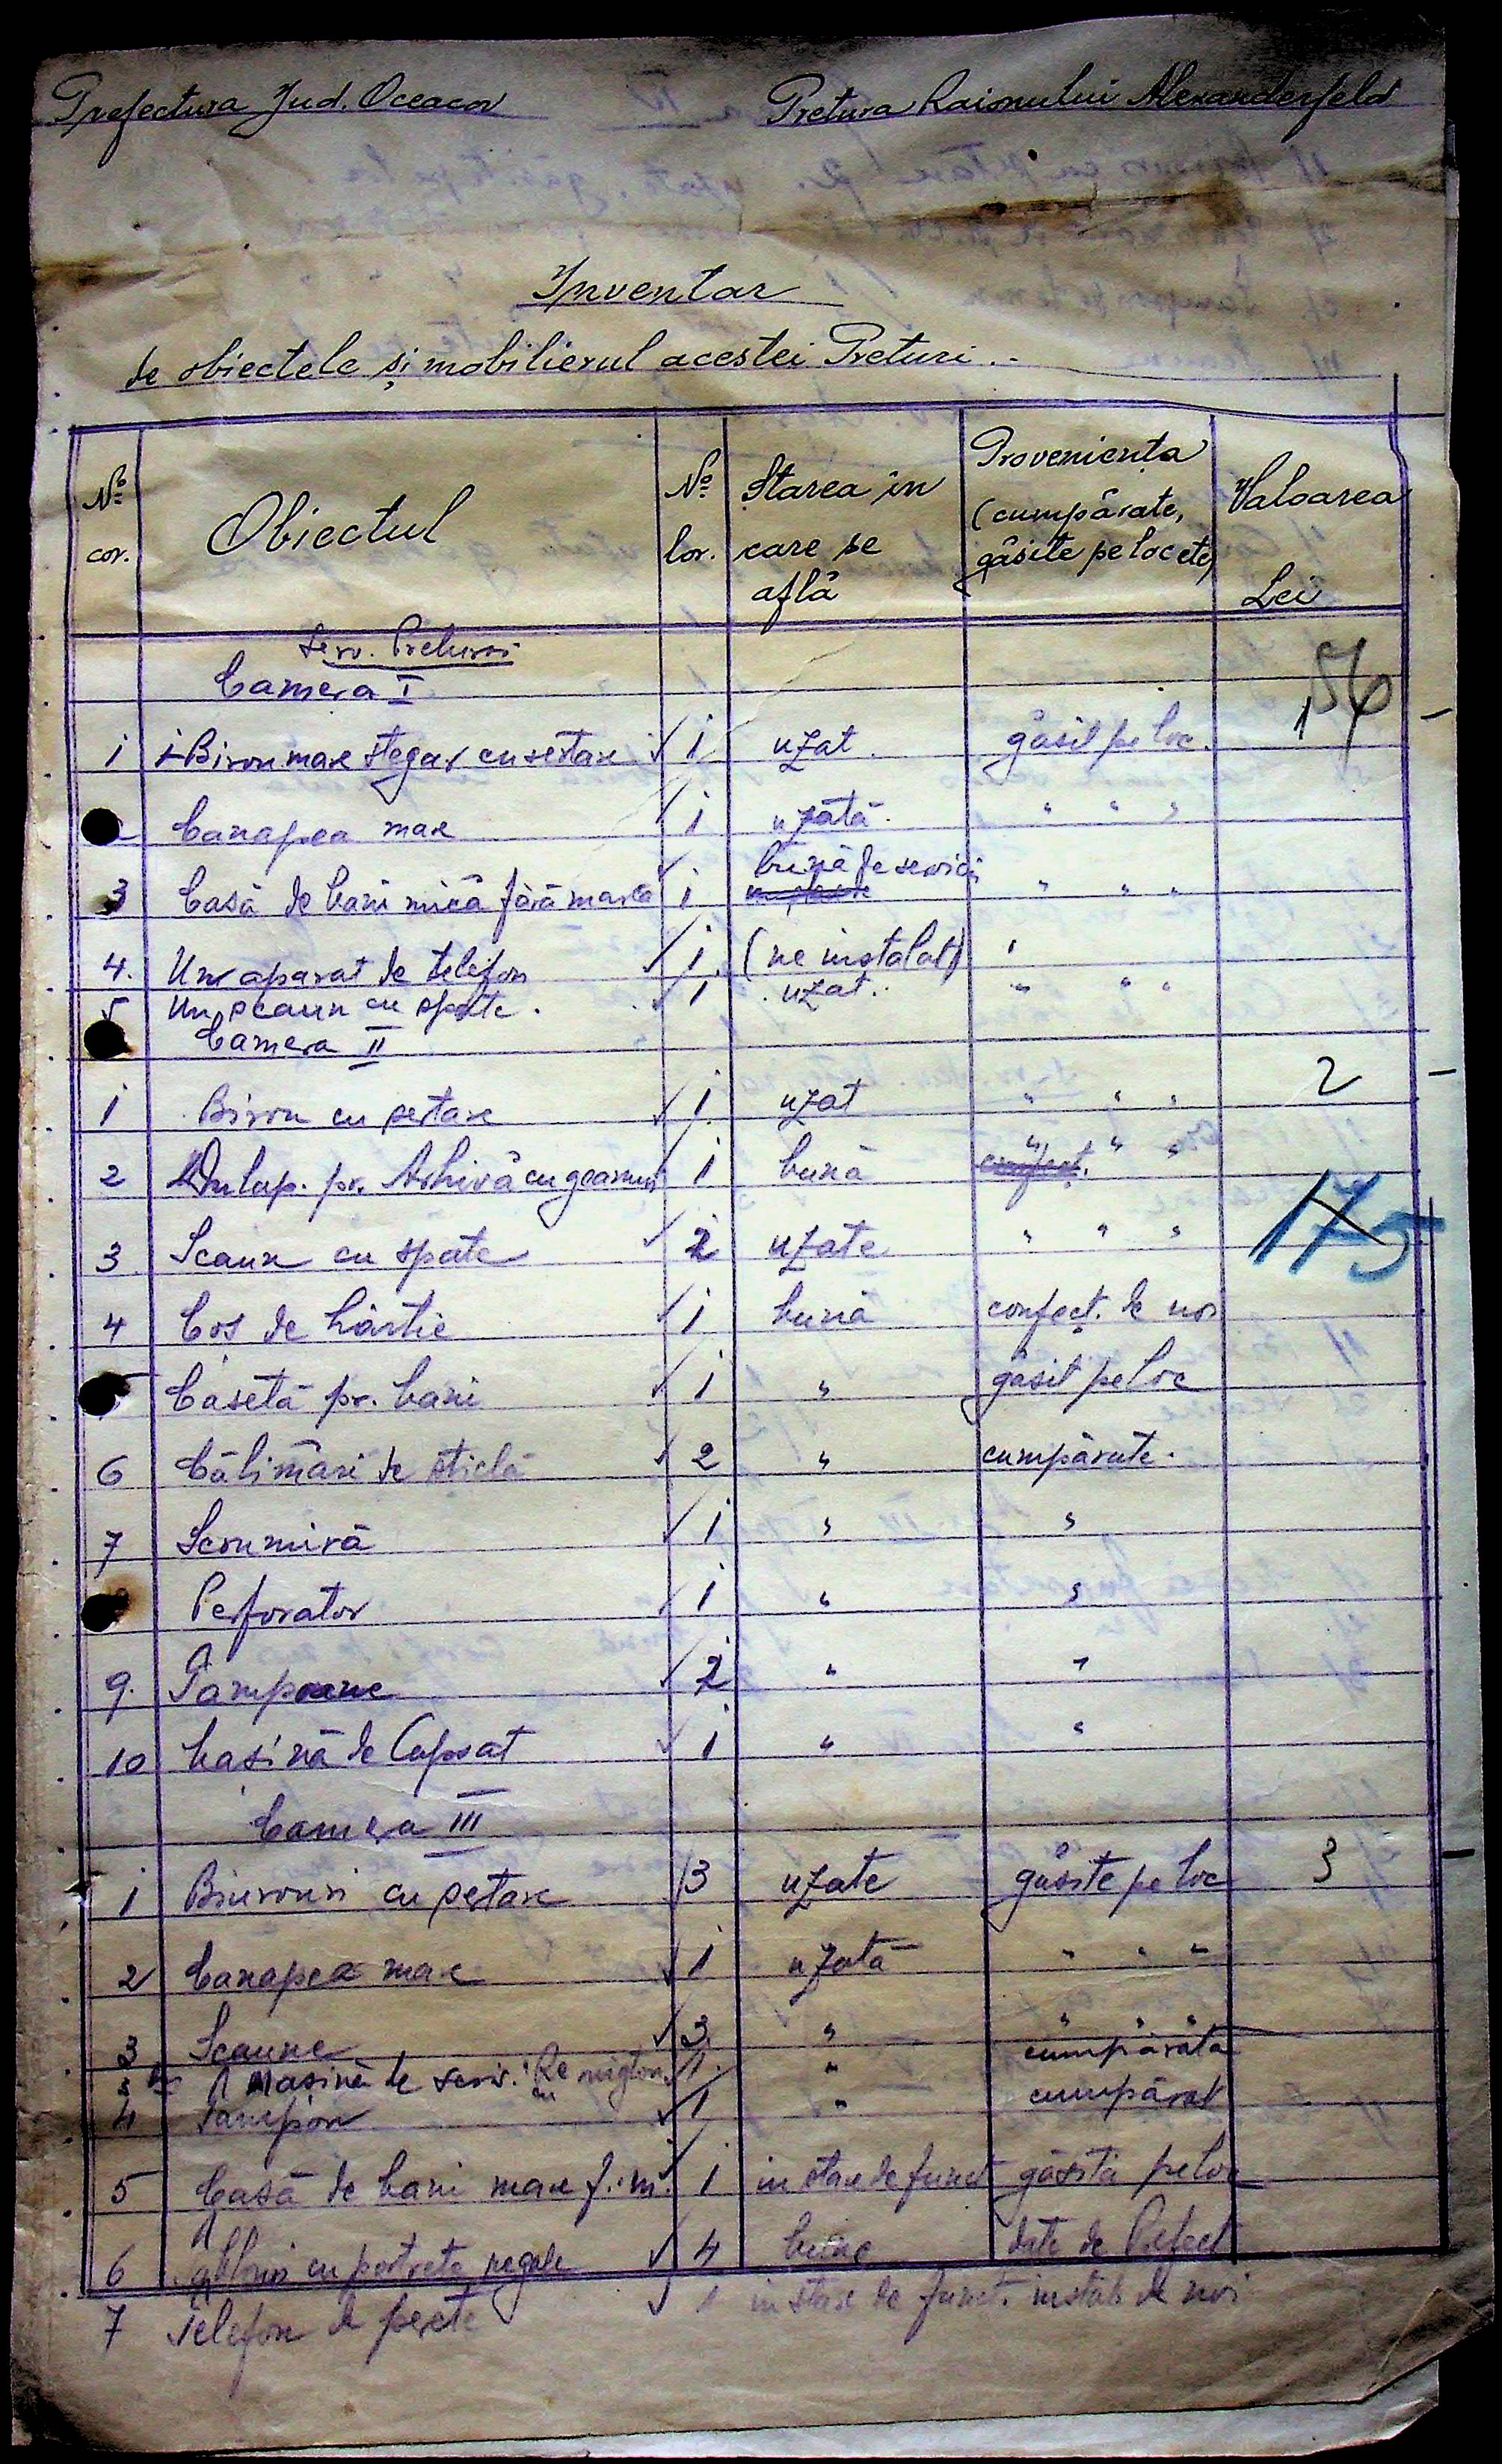 Prefectura Jud. Oceacov Pretura Raionului Alexanderfeld
Inventar
de obiectele și mobilierul acestei Preturi.-
No cor. Obiectul No lor. Starea în care se află Proveniența (cumpărate, găsite pe loc etc) Valoarea Lei
Serv. Preturei
Camera I
156
1 Birou mare stegar cu sertare √ 1 uzat. găsit pe loc.
Canapea mare √ 1 uzată. " " "
3 Casă de bani mică fără marcă √ 1 bună de servici " " "
4. Un aparat de telefon √ 1. (ne instalat) "
5 Un scaun cu spate. √ 1 uzat. " " "
Camera II
1 Birou cu sertare √ 1 uzat " " " 2
2 Dulap. pr. Arhivă cu geamuri 1 bună " " "
3 Scaun cu spate √ 2 uzate " " " 175
4 Coș de hârtie √ 1 bună confecț. de noi
5 Casetă pr. bani √ 1 " găsit pe loc
6 Călimări de sticlă √ 2 " cumpărate.
7 Scrumiră √ 1 " "
8 Perforator √ 1 " "
9. Tampoane √ 2 " "
10 Mașină de Capsat √ 1 " "
Camera III
1 Birouri cu sertare √ 3 uzate găsite pe loc 3
2 Canapea mare √ 1 uzată " " "
3 Scaune √ 3 " " " "
1 Mașină de scris. Remigton √ 1. " cumpărată
4 Tampon √ 1 " cumpărat
5 Casă de bani mare f. m. √ 1 in stare de funct găsită pe loc
6 Tablouri cu portrete regale √ 4 bune date de Prefect
7 Telefon de perete √ 1 in stare de funct. instalt de noi